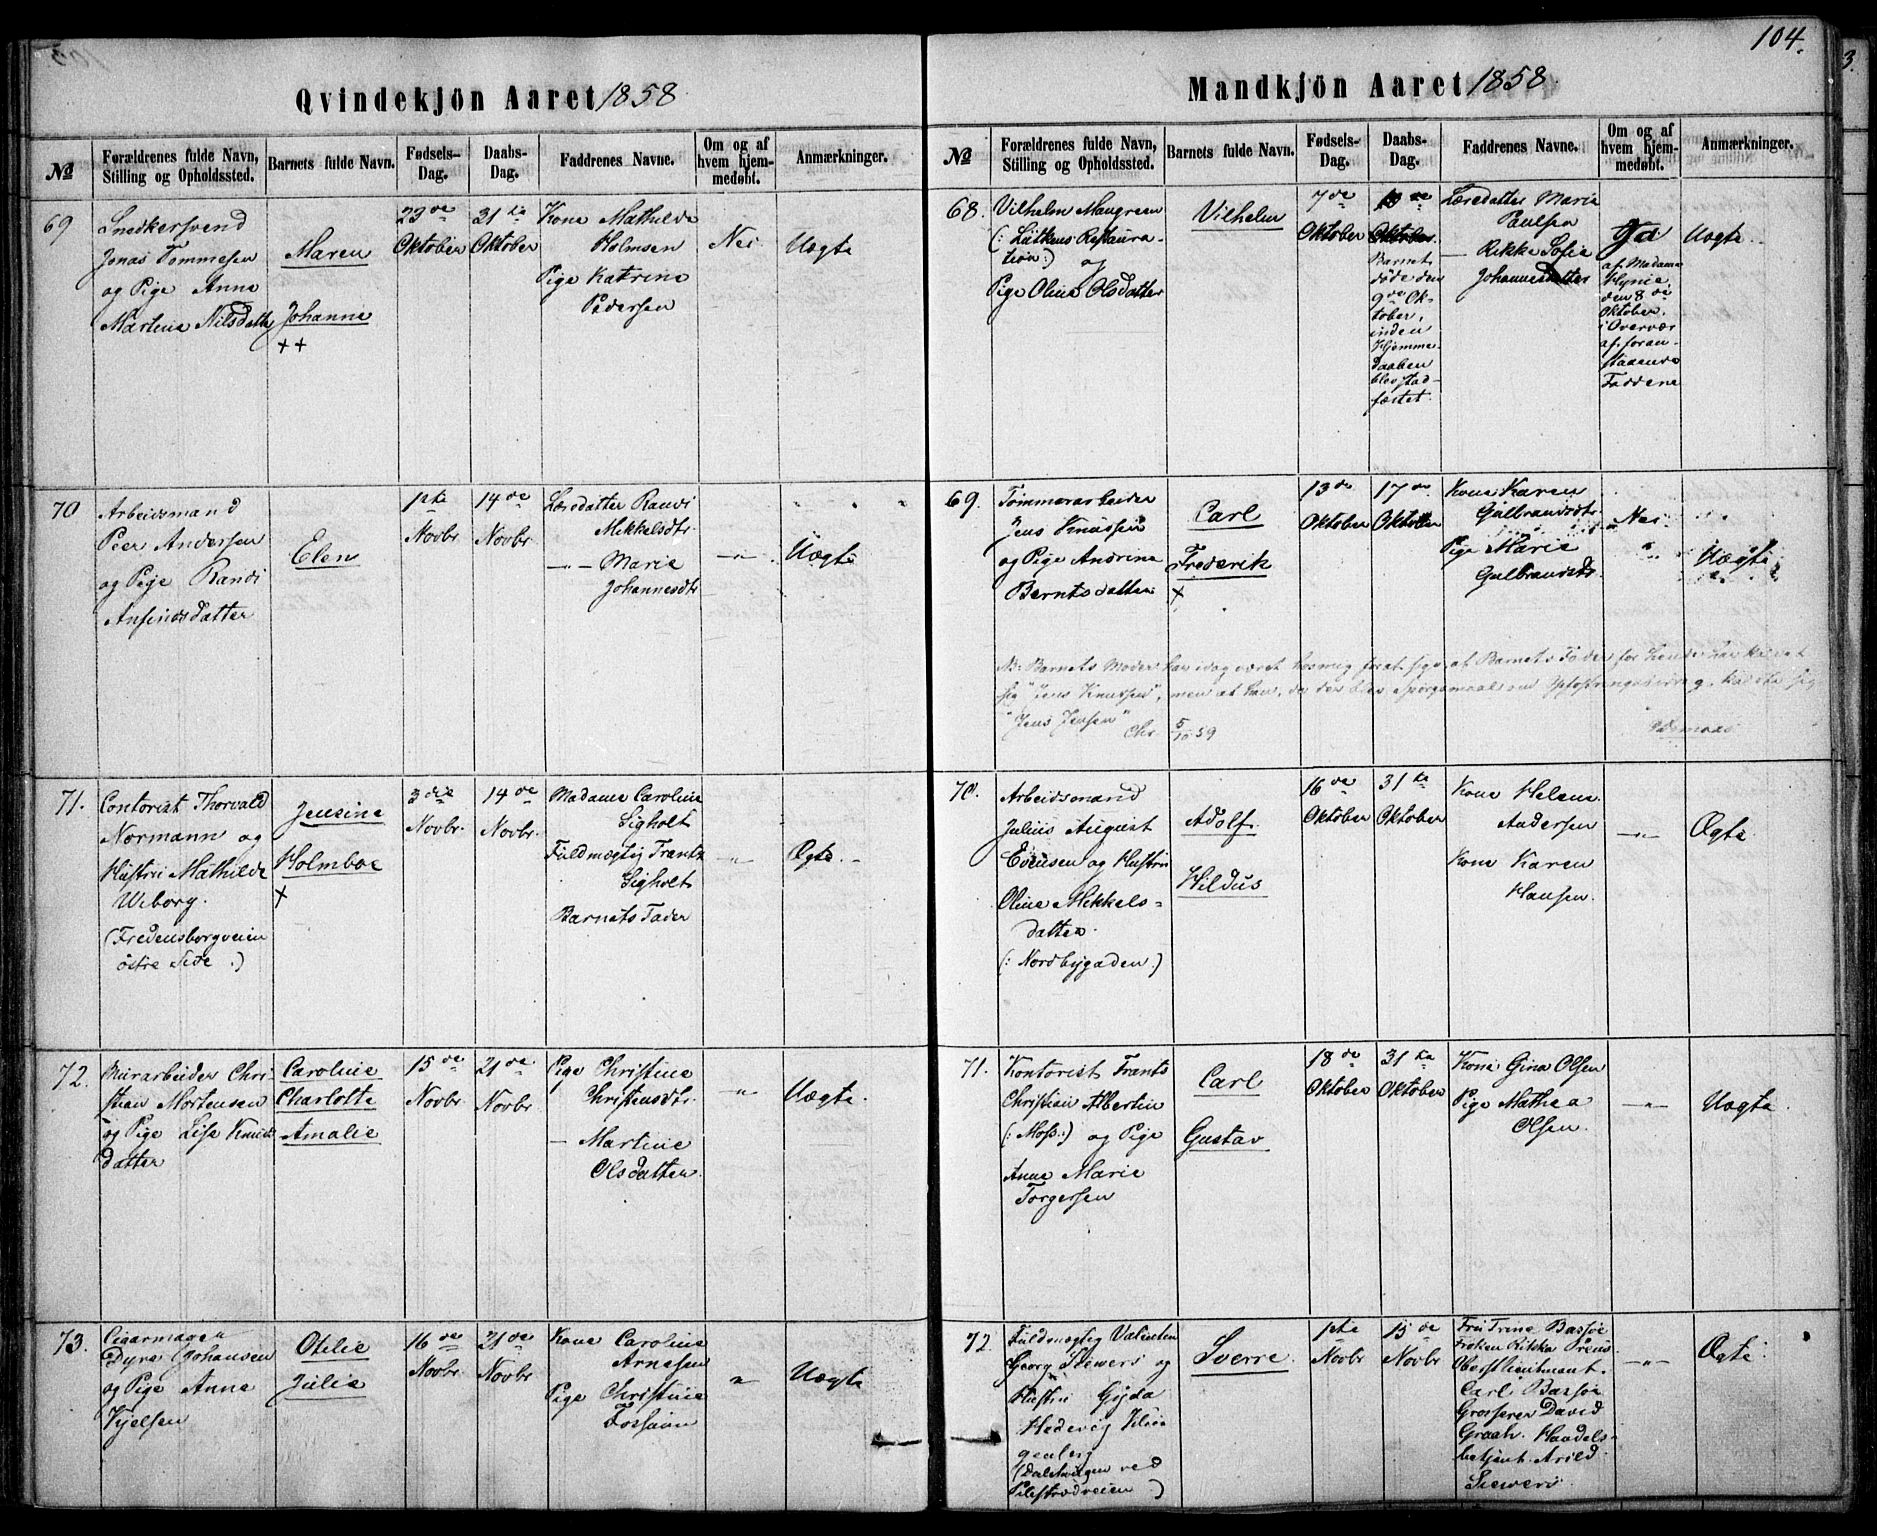 104.
Qvindekjön Aaret 1858
№
Forældrenes fulde Navn,
Stilling og Opholdssted.
Barnets fulde Navn.
Fødsels-
Dag.
Daabs-
Dag.
Faddrenes Navne.
Om og af
hvem hjem-
medøbt.
Anmærkninger.
69
Snedkersvend
Jonas Tommesen
og Pige Anne
Martine Nilsdatte
Maren
Johanne
++
23de
Oktober
31te
Oktober
Kone Mathilde
Holmsen
Pige Katrine
Pedersen
Nei
Uægte
70
Arbeidsmand
Peer Andersen
og Pige Randi
Anfindsdatter
Elen
1ste
Novbr
14de
Novbr
Læredatter Randi
Mikkelsdtr
—"— Marie
Johannesdtr
—"—
Uægte
71.
Contorist Thorvald
Normann og
Hustru Mathilde
Wiborg.
(Fredensborgveien
østre Side :)
Jensine
Holmboe
+
3die
Novbr.
14de
Novbr.
Madame Caroline
Sigholt
Fuldmægtig Frantz
Sigholt
Barnets Fader
—"—
Ægte
72.
Murarbeider Chri-
stian Mortensen
og Pige Lise Knuds
datter
Caroline
Charlotte
Amalie
15de
Novbr
21de
Novbr
Pige Christine
Christensdtr.
— Martine
Olsdatter.
—"—
Uægte.
73.
Cigarmager
Dyre Johansen
og Pige Anne
Kjelsen
Otelie
Julie
16de
Novbr
21de
Novbr
Kone Caroline
Arnesen
Pige Christine
Fossum
"
Uægte
Mandkjön Aaret 1858
№
Forældrenes fulde Navn,
Stilling og Opholdssted.
Barnets fulde Navn.
Fødsels-
Dag.
Daabs-
Dag.
Faddrenes Navne.
Om og af
hvem hjem-
medøbt.
Anmærkninger.
68.
Vilhelm Maugreen
(: Lütkens Restaura-
tion :)
og
Pige Oline Olsdatter
Vilhelm
7de
Oktober
Oktober
Barnet
døde den
9de Ok-
tober,
inden
Hjemme-
daaben
blev stad-
fæstet.
Læredatter Marie
Paulsen
— Rikke Sofie
Johannesdatter
Ja
af Madame
den 8de
Oktober.
i Overvær
af foran-
staaende
Faddere
Uægte
69.
Tømmerarbeider
Jens Knussen
og Pige Andrine
Berntsdatter
Carl
Frederik
+
13de
Oktober
17de
Oktober
Kone Karen
Gulbrandsdtr
Pige Marie
Gulbrandsdtr.
Nei
Uægte
NB: Barnets Moder har idag været hos mig for at sige, at Barnets Fader for hende har kaldet
sig "Jens Knussen", men at han, da der blev Spørgsmaal om Opfostringsbidrag, kaldte sig
"Jens Jensen" Chr 5/10 59
70.
Arbeidsmand
Julius August
Evensen og Hustru
Oline Mikkels-
datter.
(: Nordbygaden :)
Adolf
Hildus
16de
Oktober
31te
Oktober
Kone Helene
Andersen
Kone Karen
Hansen.
—"—
Ægte
71.
Kontorist Frants
Christian Albertin
(: Moss :) og Pige
Anne Marie
Torgersen
Carl
Gustav
18de
Oktober
31te
Oktober
Kone Gina Olsen
Pige Mathea
Olsen.
—"—
Uægte.
72
Fuldmægtig Valentin
Georg Siewers og
Hustru Gyda
Hedevig
(Dalsbergen ved
Pilestrædveien :)
Sverre.
1ste
Novbr
15de
Novbr
Fru Trine Bassøe
Frøken Rikka Preus
Oberstlieutnant
Carl Bassøe
Grosserer David
Graah. Handels-
betjent Arild
Siewers.
—"—
Ægte